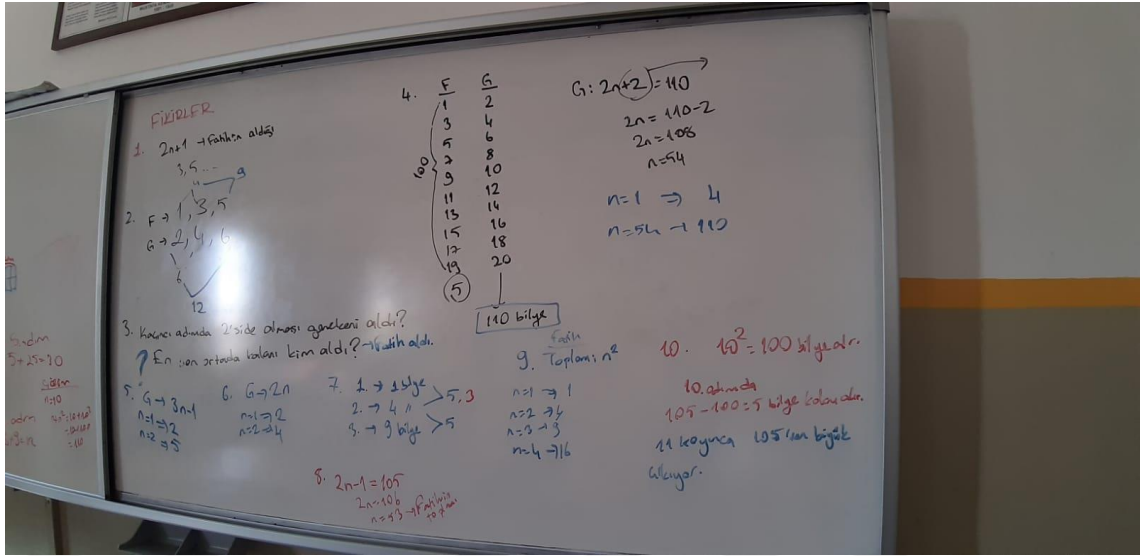 FİKİRLER
1. 2n+1 → Fatihin aldığı
3, 5 ...
4 9
2. F → 1, 3, 5
G → 2, 4, 6
6
12
3. Kaçıncı adımda 2'side olması gerekeni aldı?
? En son ortada kalanı kim aldı? → Fatih aldı.
4. F G
1 2
3 4
5 6
7 8
9 10
11 12
13 14
15 16
17 18
19 20
5
100
110 bilye
G: 2n+2 = 110
2n = 110-2
2n = 108
n = 54
n=1 ⇒ 4
n=54 → 110
5. G → 3n-1
n=1 ⇒ 2
n=2 ⇒ 5
6. G → 2n
n=1 ⇒ 2
n=2 ⇒ 4
7. 1. → 1 bilye
2. → 4 "
3. → 9 bilye
> 5, 3
> 5
8. 2n-1 = 105
2n = 106
n = 53 → Fatihin
9. Fatih
Toplam: n²
n=1 → 1
n=2 → 4
n=3 → 9
n=4 → 16
10. 10² = 100 bilye alır.
10. adımda
105-100 = 5 bilye kalan alır.
11 koyunca 105'ten büyük
çıkıyor.
5+25=30
n=10